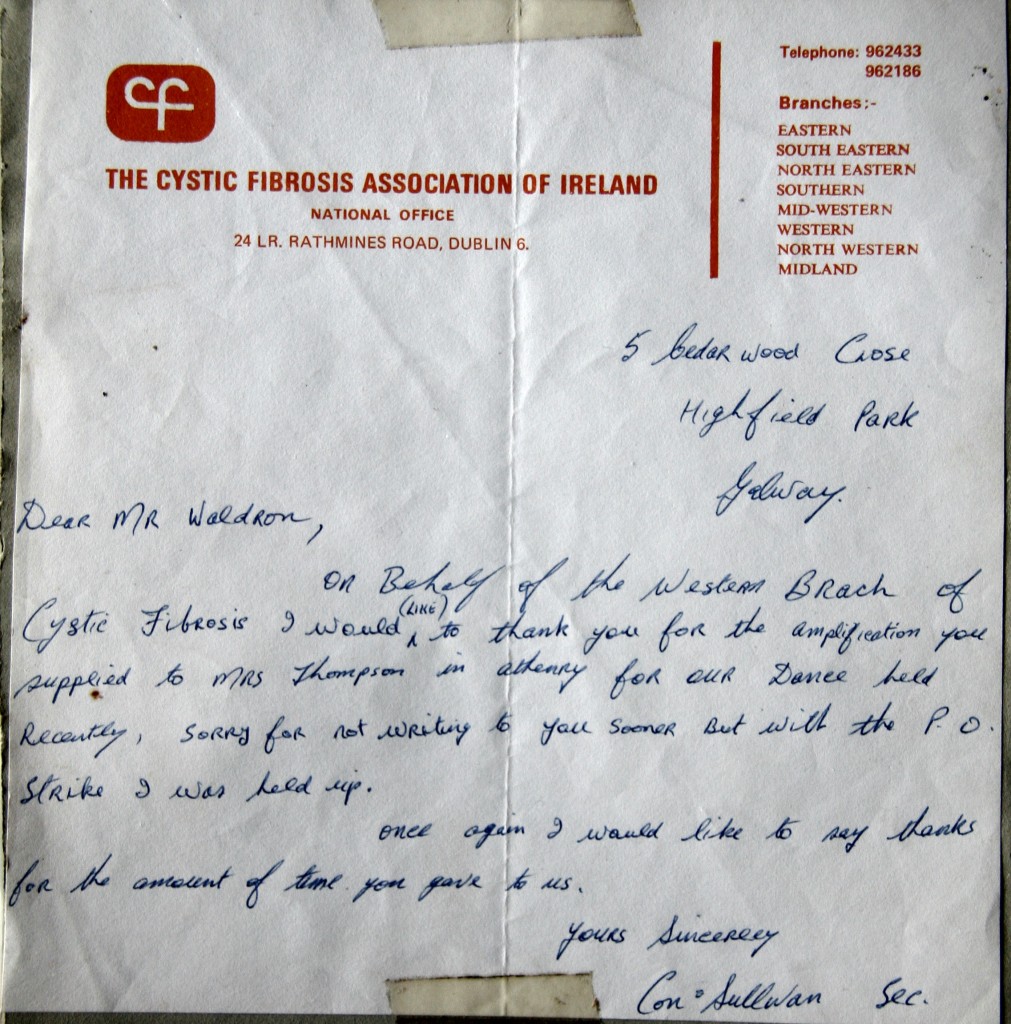 cf
THE CYSTIC FIBROSIS ASSOCIATION OF IRELAND
NATIONAL OFFICE
24 LR. RATHMINES ROAD, DUBLIN 6.
Telephone: 962433
962186
Branches:-
EASTERN
SOUTH EASTERN
NORTH EASTERN
SOUTHERN
MID-WESTERN
WESTERN
NORTH WESTERN
MIDLAND
5 Cedar wood Close
Highfield Park
Galway.
Dear Mr Waldron,
On Behalf of the Western Brach of
Cystic Fibrosis I would (LIKE) to thank you for the amplification you
supplied to Mrs Thompson in athenry for our Dance held
Recently, sorry for not writing to you sooner But with the P.O.
Strike I was held up.
once again I would like to say thanks
for the amount of time you gave to us.
yours Sincerely
Con O Sullivan Sec.